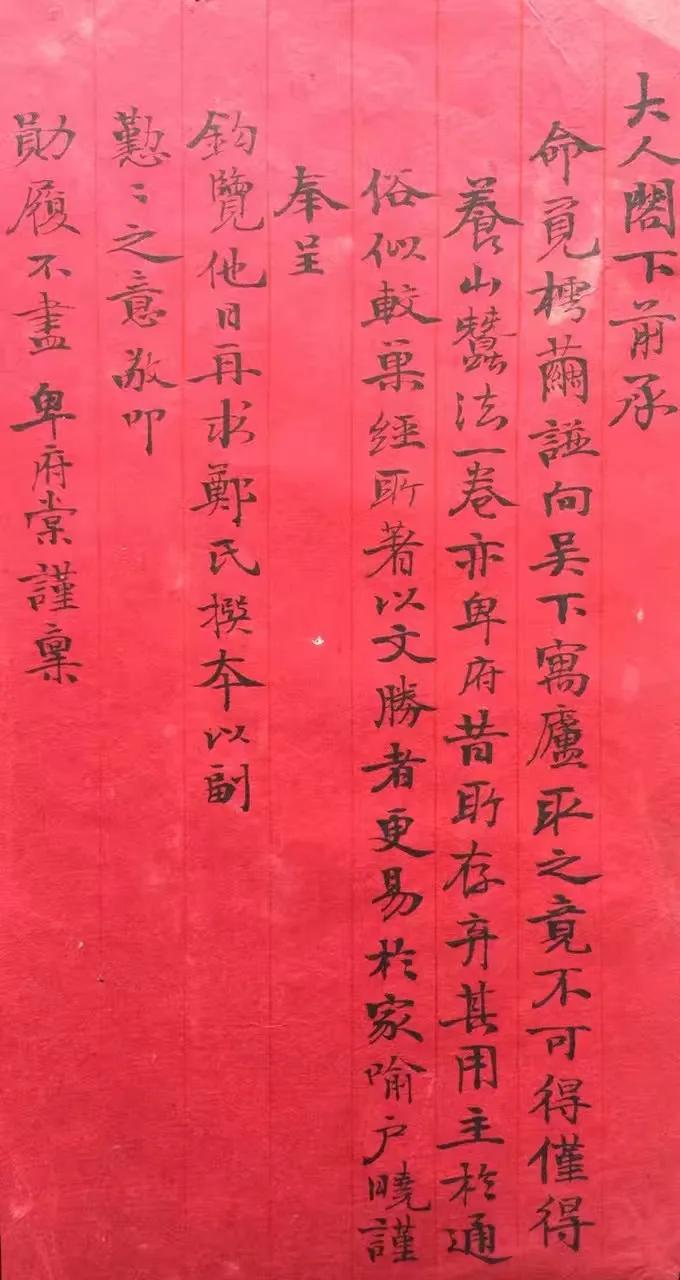 大人閣下前承
命覓樗繭譜向吴下寓廬取之竟不可得僅得
養山蠶法一卷亦卑府昔所存弃其用主於通
俗似較巢經所著以文勝者更易於家喻户曉謹
奉呈
鈞覽他日再求鄭氏撰本以副
懃〻之意敬叩
勛履不盡卑府棠謹稟